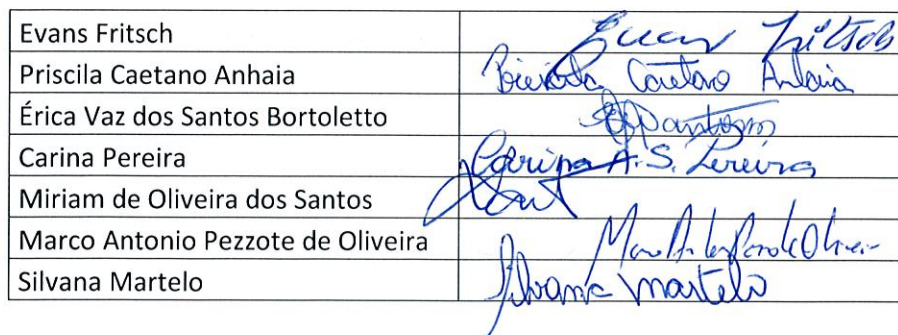 Evans Fritsch Evans Fritsch
Priscila Caetano Anhaia Priscila Caetano Anhaia
Érica Vaz dos Santos Bortoletto
Carina Pereira Carina A. S. Pereira
Miriam de Oliveira dos Santos
Marco Antonio Pezzote de Oliveira
Silvana Martelo Silvana Martelo